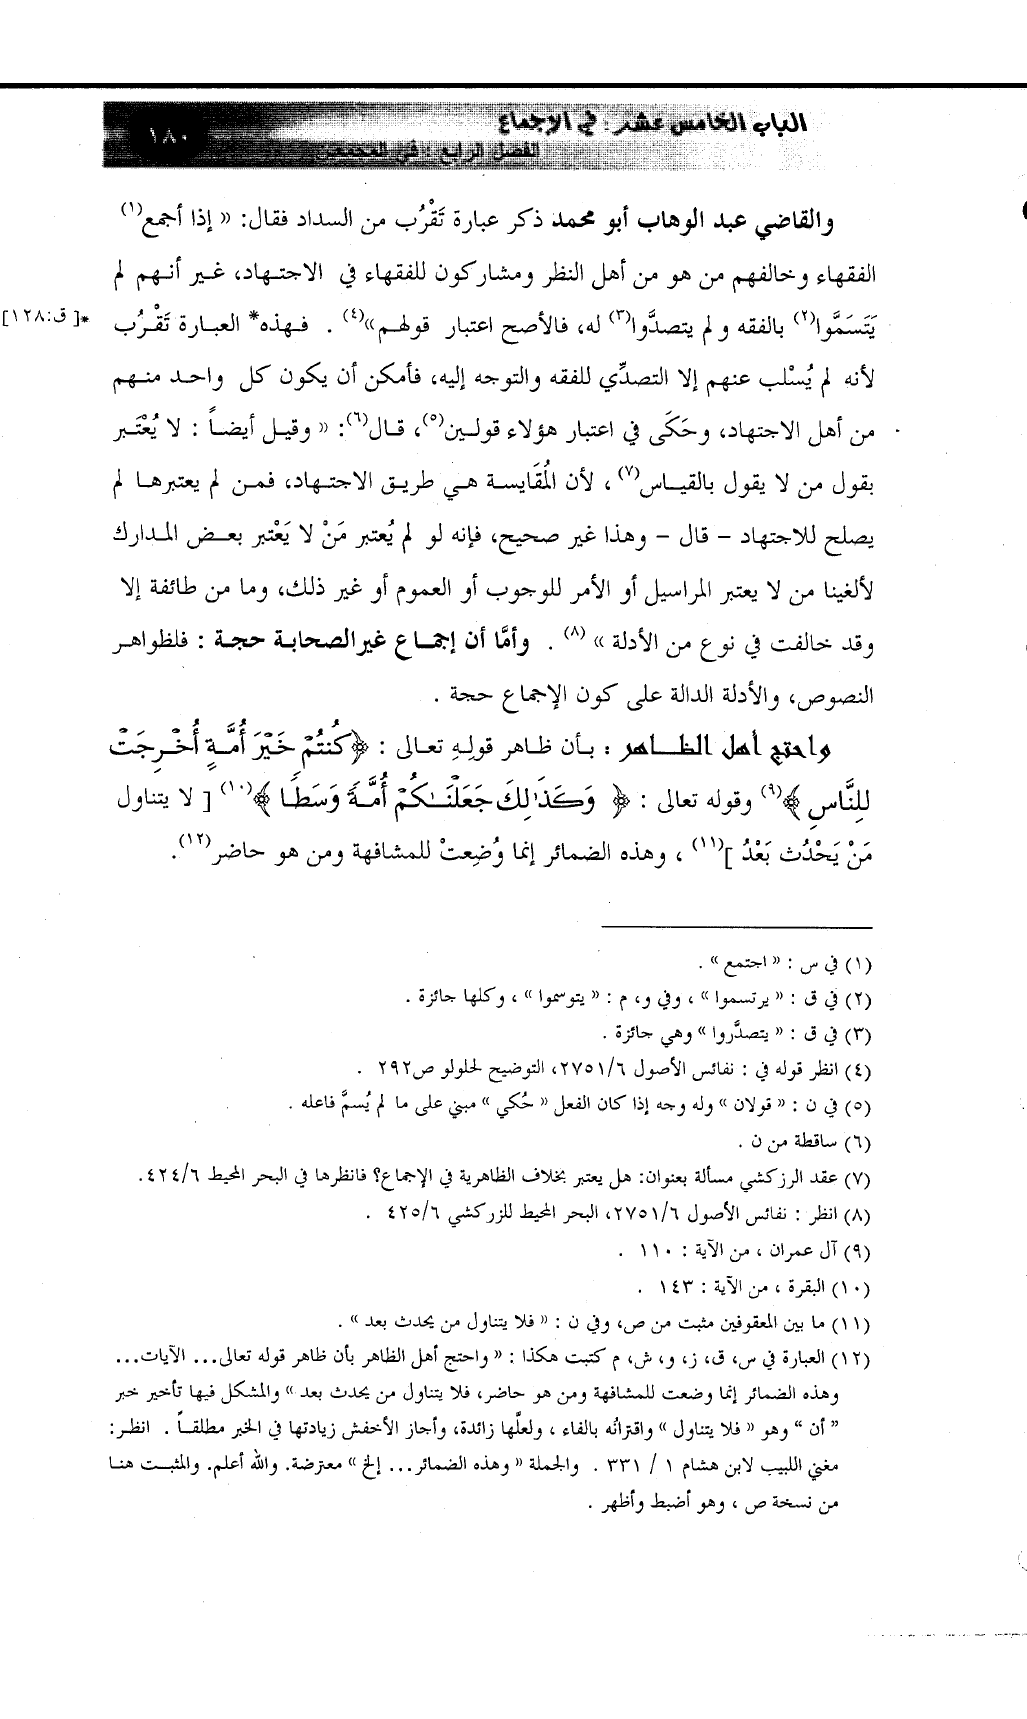 الباب الخامس عشر : في الإجماع
١٨٠
الفصل الرابع : في المجمعين
والقاضي عبد الوهاب أبو محمد ذكر عبارة تَقْرُب من السداد فقال: « إذا أجمع(١)
الفقهاء وخالفهم من هو من أهل النظر ومشاركون للفقهاء في الاجتهاد، غير أنهم لم
يَتَسَمَّوا(٢) بالفقه و لم يتصدَّوا(٣) له، فالأصح اعتبار قولهم»(٤) . فهذه* العبارة تَقْرُب
*[ق:١٢٨]
لأنه لم يُسْلب عنهم إلا التصدِّي للفقه والتوجه إليه، فأمكن أن يكون كل واحد منهم
من أهل الاجتهاد، وحَكَى في اعتبار هؤلاء قولين(٥)، قال(٦): « وقيل أيضاً : لا يُعْتَبر
بقول من لا يقول بالقياس(٧) ، لأن المُقَايسة هي طريق الاجتهاد، فمن لم يعتبرها لم
يصلح للاجتهاد – قال – وهذا غير صحيح، فإنه لو لم يُعتبر مَنْ لا يَعْتبر بعض المدارك
لألغينا من لا يعتبر المراسيل أو الأمر للوجوب أو العموم أو غير ذلك، وما من طائفة إلا
وقد خالفت في نوع من الأدلة » (٨) . وأمَّا أن إجماع غير الصحابة حجة : فلظواهر
النصوص، والأدلة الدالة على كون الإجماع حجة .
واحتج أهل الظاهر : بأن ظاهر قولِهِ تعالى : ﴿كُنتُمْ خَيْرَ أُمَّةٍ أُخْرِجَتْ
لِلنَّاسِ﴾(٩) وقوله تعالى : ﴿ وَكَذَٰلِكَ جَعَلْنَـٰكُمْ أُمَّةً وَسَطًا ﴾(١٠) [ لا يتناول
مَنْ يَحْدُث بَعْدُ ](١١) ، وهذه الضمائر إنما وُضِعتْ للمشافهة ومن هو حاضر(١٢).
(١) في س : « اجتمع » .
(٢) في ق : « يرتسموا » ، وفي و، م : « يتوسموا » ، وكلها جائزة .
(٣) في ق : « يتصدَّروا » وهي جائزة .
(٤) انظر قوله في : نفائس الأصول ٢٧٥١/٦، التوضيح لحلولو ص٢٩٢ .
(٥) في ن : « قولان » وله وجه إذا كان الفعل « حُكي » مبني على ما لم يُسمَّ فاعله .
(٦) ساقطة من ن .
(٧) عقد الزركشي مسألة بعنوان: هل يعتبر بخلاف الظاهرية في الإجماع؟ فانظرها في البحر المحيط ٤٢٤/٦.
(٨) انظر : نفائس الأصول ٢٧٥١/٦، البحر المحيط للزركشي ٤٢٥/٦ .
(٩) آل عمران ، من الآية : ١١٠ .
(١٠) البقرة ، من الآية : ١٤٣ .
(١١) ما بين المعقوفين مثبت من ص، وفي ن : « فلا يتناول من يحدث بعد » .
(١٢) العبارة في س، ق، ز، و، ش، م كتبت هكذا : « واحتج أهل الظاهر بأن ظاهر قوله تعالى... الآيات...
وهذه الضمائر إنما وضعت للمشافهة ومن هو حاضر، فلا يتناول من يحدث بعد » والمشكل فيها تأخير خبر
" أن " وهو « فلا يتناول » واقترانُه بالفاء ، ولعلَّها زائدة، وأجاز الأخفش زيادتها في الخبر مطلقاً . انظر:
مغني اللبيب لابن هشام ١ / ٣٣١ . والجملة « وهذه الضمائر... إلخ » معترضة. والله أعلم. والمثبت هنا
من نسخة ص ، وهو أضبط وأظهر .